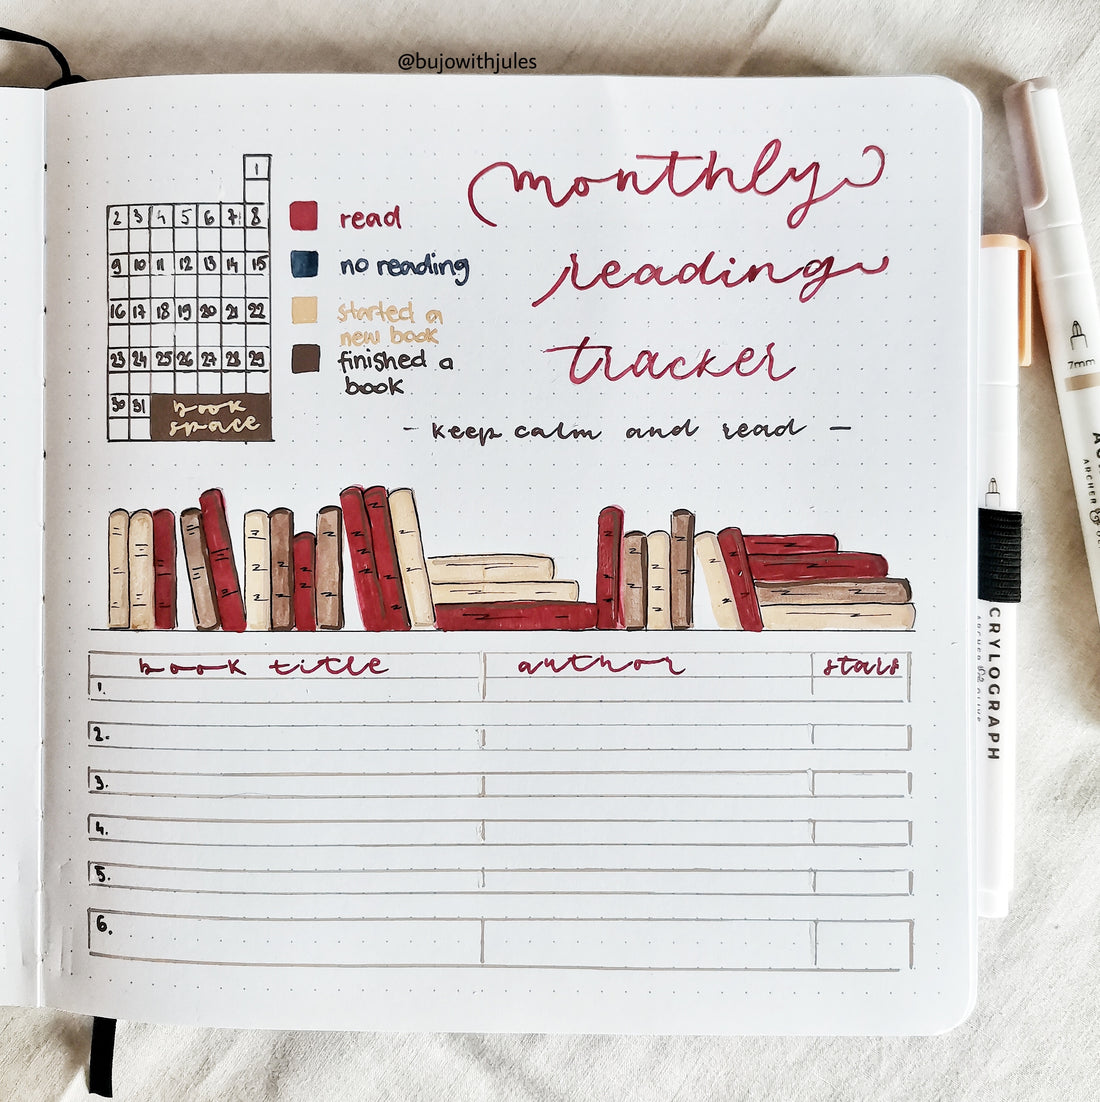 @bujowithjules
monthly
reading
tracker
- keep calm and read -
1
2 3 4 5 6 7 8
9 10 11 12 13 14 15
16 17 18 19 20 21 22
23 24 25 26 27 28 29
30 31
book
space
read
no reading
started a
new book
finished a
book
book title author stars
1.
2.
3.
4.
5.
6.
7mm
ARCHER
CRYLOGRAPH